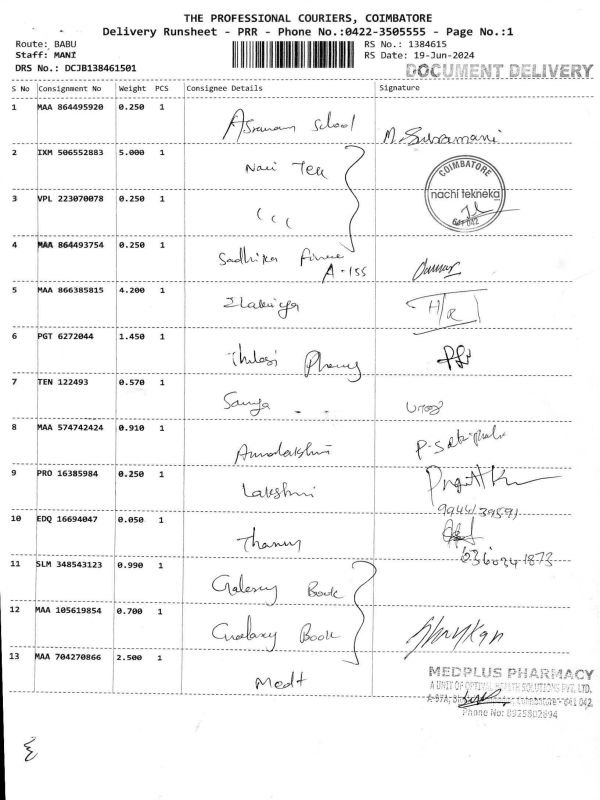 THE PROFESSIONAL COURIERS, COIMBATORE
Delivery Runsheet - PRR - Phone No.:0422-3505555 - Page No.:1
Route: BABU
Staff: MANI
DRS No.: DCJB138461501
RS No.: 1384615
RS Date: 19-Jun-2024
DOCUMENT DELIVERY
S No Consignment No Weight PCS Consignee Details Signature
1 MAA 864495920 0.250 1 School M. Subramani
2 IXM 506552883 5.000 1 Navi Tek
COIMBATORE
nachi tekneka
641 042
3 VPL 223070078 0.250 1
4 MAA 864493754 0.250 1 Sadhika
A-155
5 MAA 866385815 4.200 1 H/R
6 PGT 6272044 1.450 1 Thulasi
7 TEN 122493 0.570 1 Sanya
8 MAA 574742424 0.910 1
9 PRO 16385984 0.250 1 Lakshmi
9944139591
10 EDQ 16694047 0.050 1
11 SLM 348543123 0.990 1 Galaxy Book
12 MAA 105619854 0.700 1 Galaxy Book
13 MAA 704270866 2.500 1 Medt
MEDPLUS PHARMACY
A UNIT OF OPTIVAL HEALTH SOLUTIONS PVT. LTD.
Coimbatore - 641 042
Phone No: 8925802894